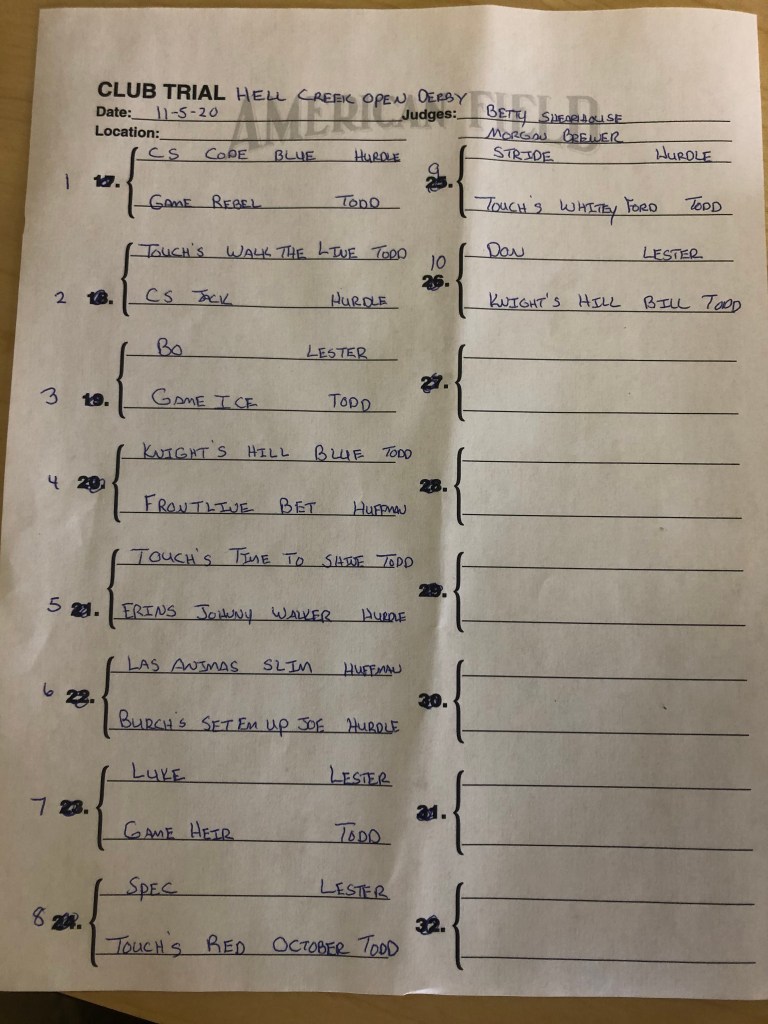 AMERICAN FIELD
CLUB TRIAL HELL CREEK OPEN DERBY
Date: 11-5-20 Judges: BETTY
Location: MORGAN BREWER
1 17. CS CODE BLUE HURDLE
GAME REBEL TODD
2 18. TOUCH'S WALK THE LINE TODD
CS JACK HURDLE
3 19. BO LESTER
GAME ICE TODD
4 20. KNIGHT'S HILL BLUE TODD
FRONTLINE BET HUFFMAN
5 21. TOUCH'S TIME TO SHINE TODD
ERINS JOHNNY WALKER HURDLE
6 22. LAS ANIMAS SLIM HUFFMAN
BURCH'S SET EM UP JOE HURDLE
7 23. LUKE LESTER
GAME HEIR TODD
8 24. SPEC LESTER
TOUCH'S RED OCTOBER TODD
9 25. STRIDE HURDLE
TOUCH'S WHITEY FORD TODD
10 26. DON LESTER
KNIGHT'S HILL BILL TODD
27.
28.
29.
30.
31.
32.